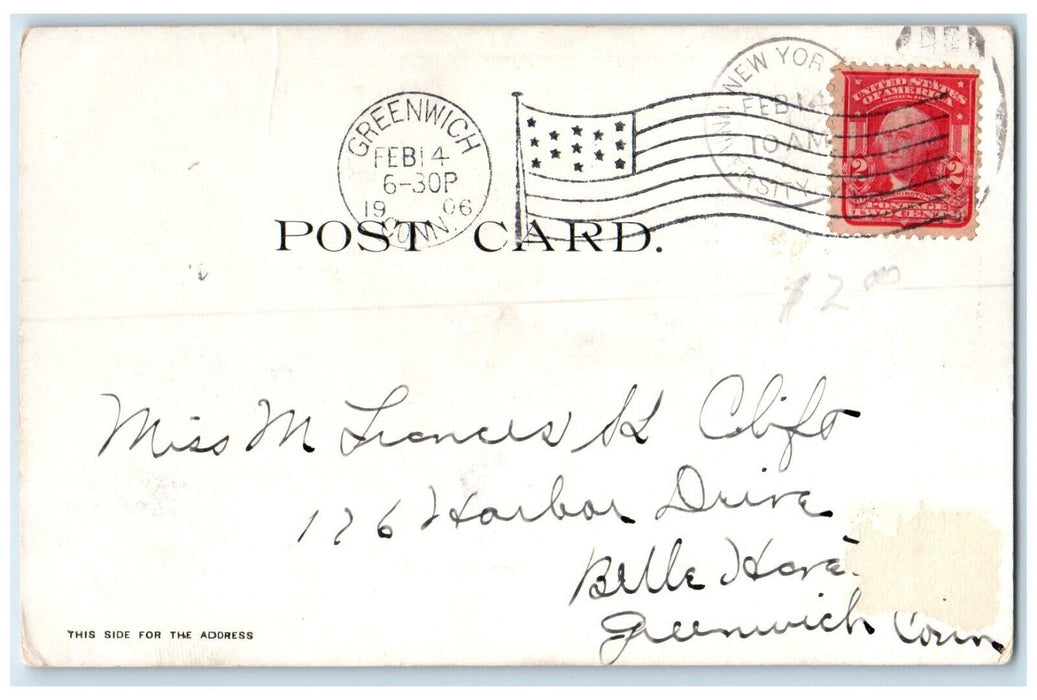 NEW YOR
FEB 14
10 AM
SITY
GREENWICH
FEB 14
6-30P
19 06
CONN.
UNITED STATES
OF AMERICA
2 2
POSTAGE
TWO CENTS
POST CARD.
$2.00
Miss M Frances K Clift
126 Harbor Drive
Belle Have
Greenwich Conn
THIS SIDE FOR THE ADDRESS